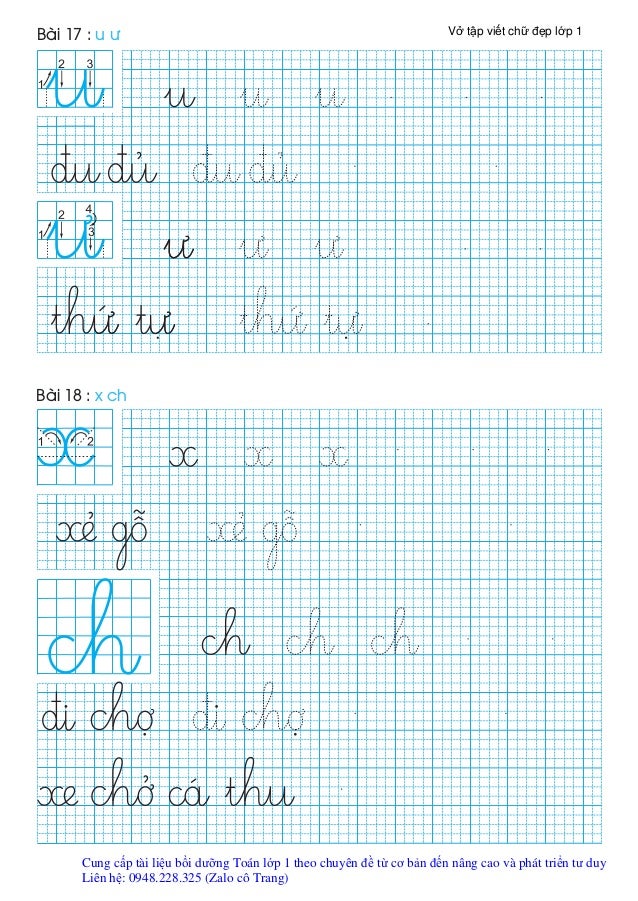 Bài 17 : u ư
Vở tập viết chữ đẹp lớp 1
1 2 3
u u u u
đu đủ đu đủ
1 2 3 4
ư ư ư ư
thứ tự thứ tự
Bài 18 : x ch
1 2
x x x x
xẻ gỗ xẻ gỗ
ch ch ch ch
đi chợ đi chợ
xe chở cá thu
Cung cấp tài liệu bồi dưỡng Toán lớp 1 theo chuyên đề từ cơ bản đến nâng cao và phát triển tư duy
Liên hệ: 0948.228.325 (Zalo cô Trang)